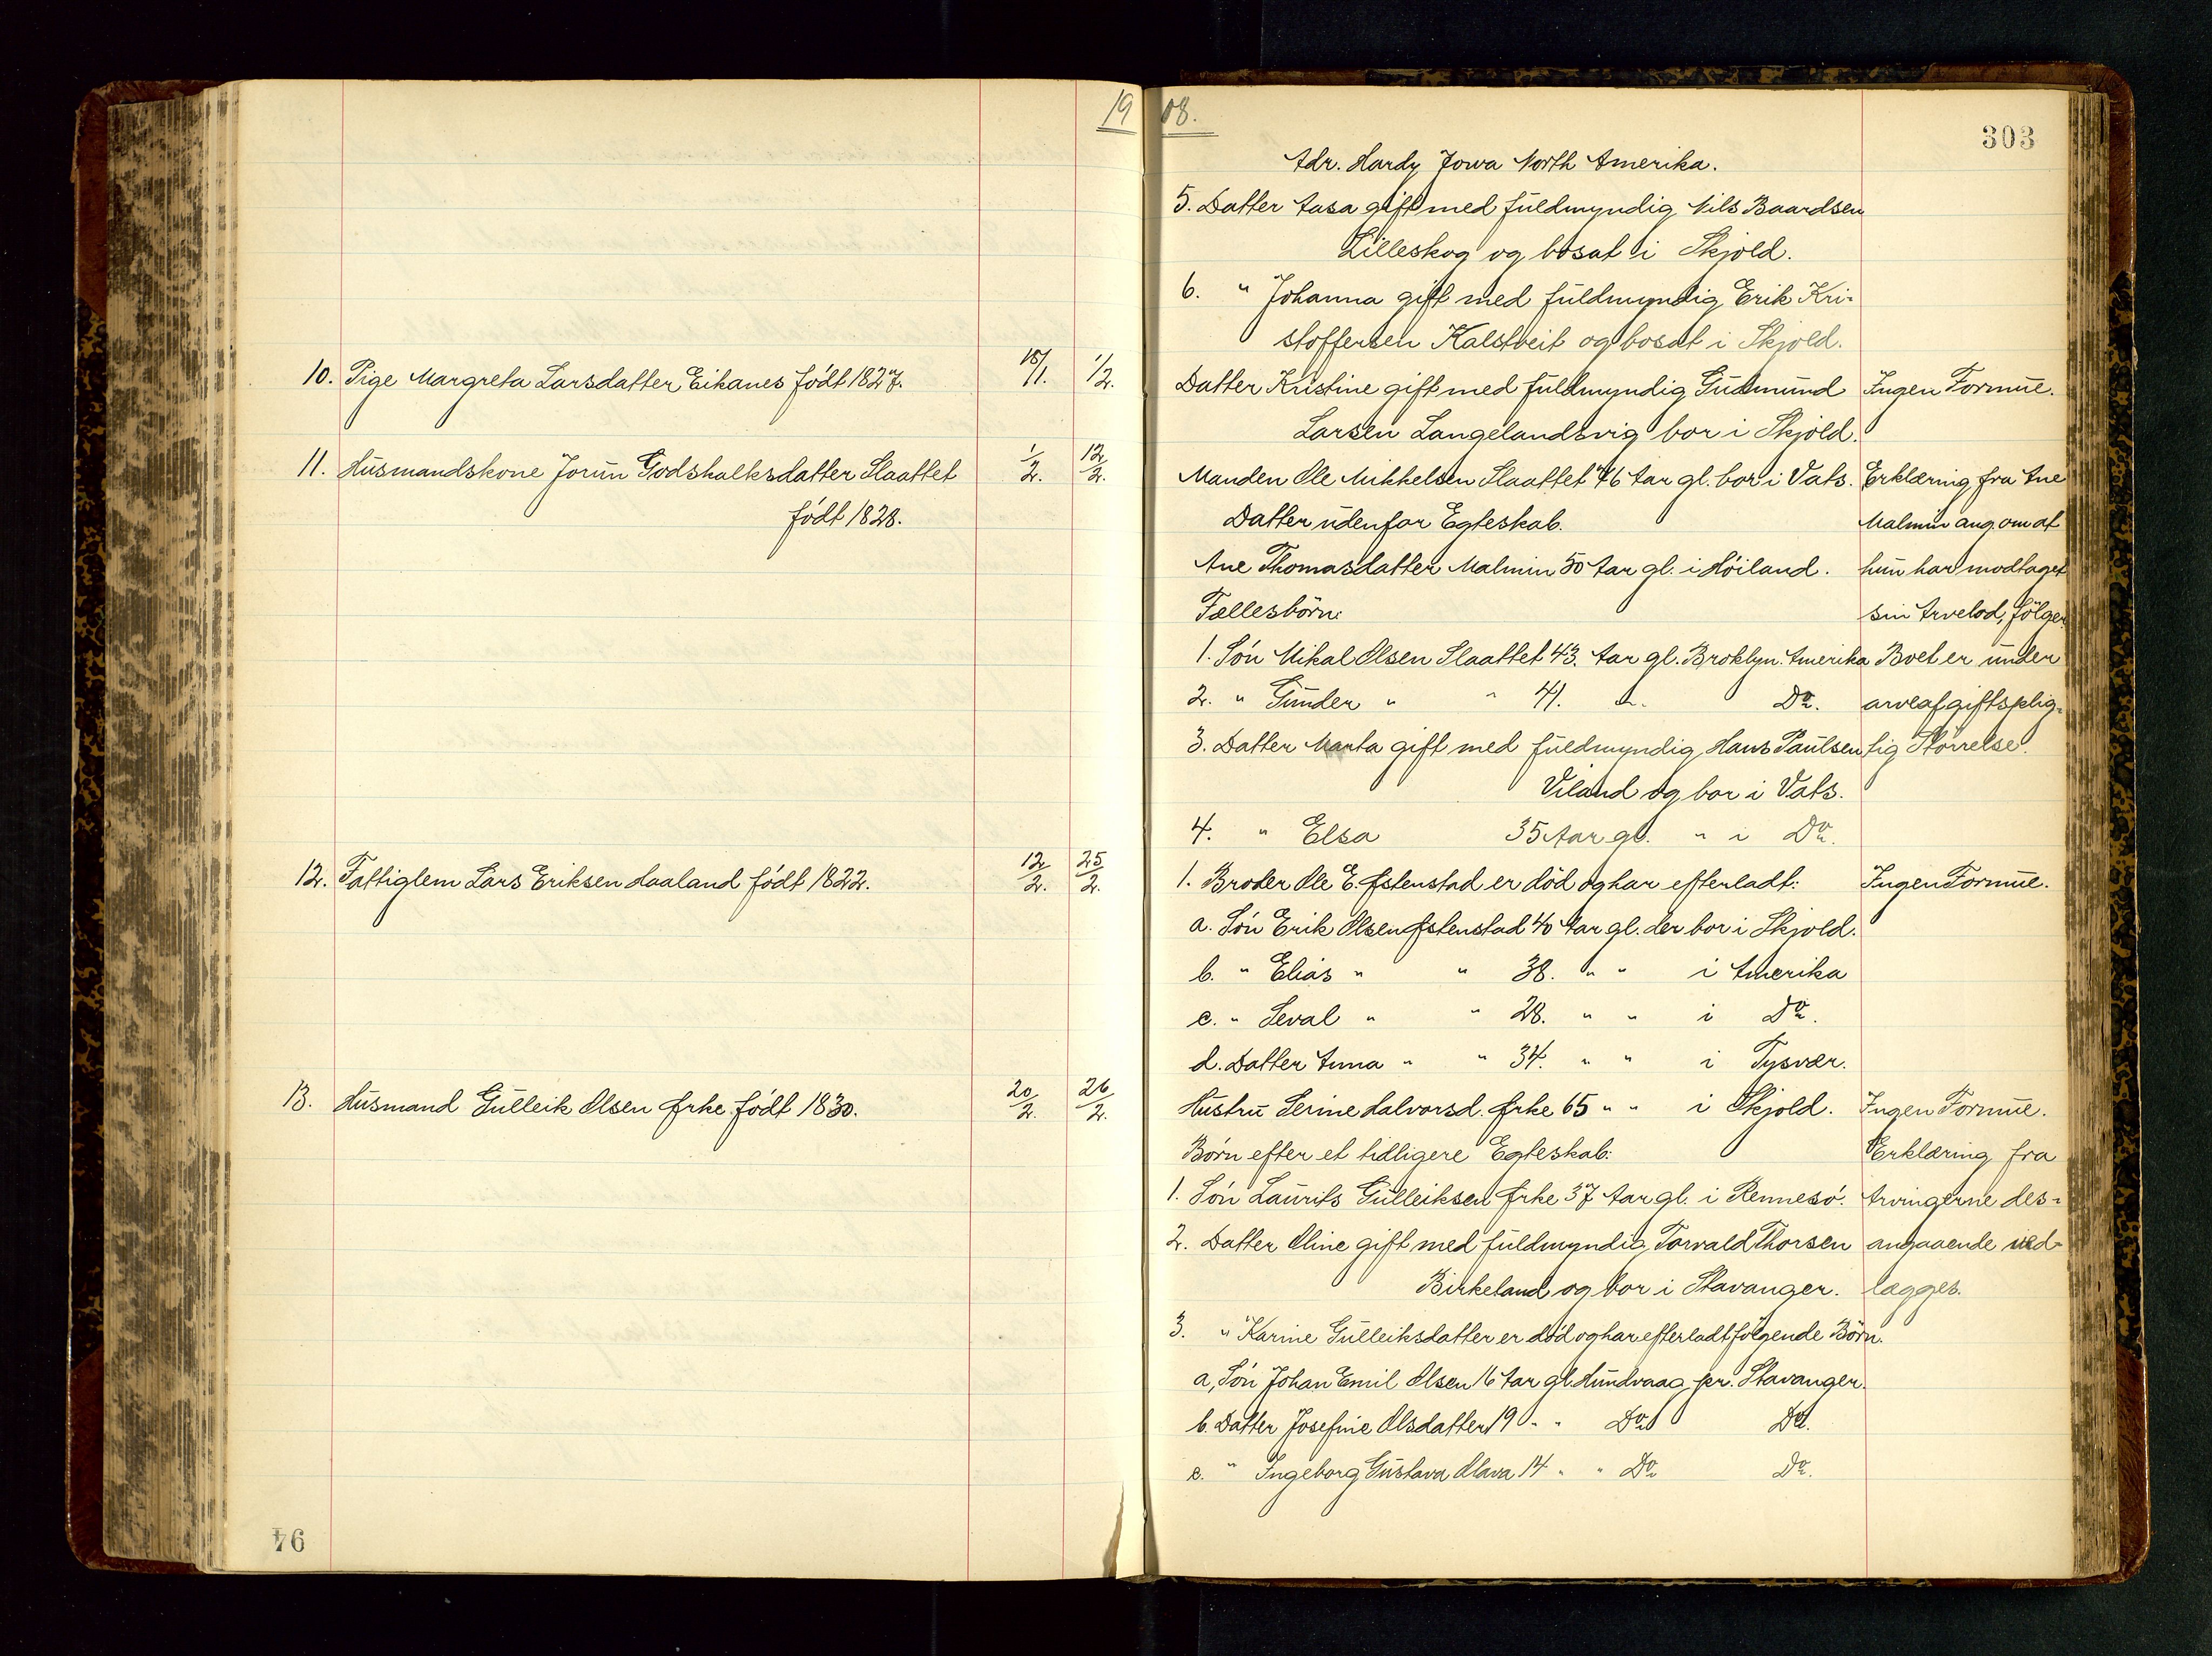 1908.
303
Adr. Hardy Jowa North Amerika.
5. Datter Aasa gift med fuldmyndig Nils Baardsen
Lilleskog og bosat i Skjold.
6. " Johanna gift med fuldmyndig Erik Kri-
stoffersen Kalstveit og bosat i Skjold.
10. Pige Margreta Larsdatter Eikanes født 1827. 18/1. 1/2. Datter Kristine gift med fuldmyndig Gudmund Ingen Formue.
Larsen Langelandsvig bor i Skjold.
11. Husmandskone Jorun Godskalksdatter Slaattet 1/2. 12/2. Manden Ole Mikkelsen Slaattet 76 Aar gl. bor i Vats. Erklæring fra Ane
født 1828. Datter udenfor Egteskab. Malmin ang. om at
Ane Thomasdatter Malmin 50 Aar gl. i Høiland. hun har modtaget
Fællesbörn: sin Arvelod, følger.
1. Søn Mikal Olsen Slaattet 43. Aar gl. Broklyn. Amerika Boet er under
2. " Gunder " " 41. " Do. arveafgiftsplig-
3. Datter Marta gift med fuldmyndig Hans Paulsen tig Størrelse.
Viland og bor i Vats.
4. " Elsa 35 Aar gl. " i Do.
12. Fattiglem Lars Eriksen Haaland født 1822. 12/2. 25/2. 1. Broder Ole E. Østenstad er död og har efterladt: Ingen Formue.
a. Søn Erik Olsen Østenstad 40 Aar gl. der bor i Skjold.
b. " Elias " " 38. " " i Amerika
c. " Seval " " 28. " " i Do.
d. Datter Anna " " 34. " " i Tysvær.
13. Husmand Gulleik Olsen Ørke født 1830. 20/2. 26/2. Hustru Serine Halvorsd. Ørke 65 " " i Skjold. Ingen Formue.
Børn efter et tidligere Egteskab: Erklæring fra
1. Søn Laurits Gulleiksen Ørke 37 Aar gl. i Rennesø. Arvingerne des-
2. Datter Oline gift med fuldmyndig Torvald Thorsen angaaende ved-
Birkeland og bor i Stavanger. lægges.
3. " Karine Gulleiksdatter er död og har efterladt følgende Börn.
a, Søn Johan Emil Olsen 16 Aar gl. Hundvaag pr. Stavanger.
b. Datter Josefine Olsdatter 19 " " Do. Do.
c. " Ingeborg Gustava Olava 14 " " Do. Do.
94